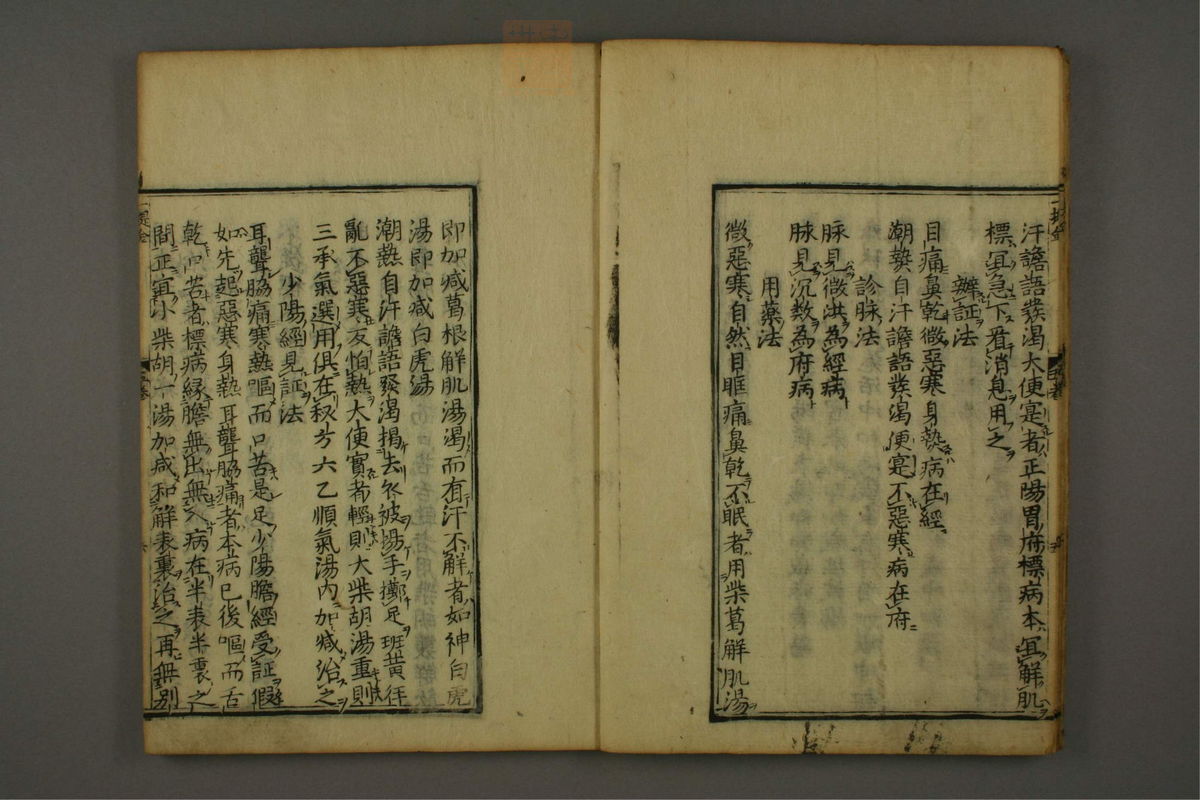 汗譫語發渴大便寔者正陽胃府標病本宜解肌
標宜急下看消息用之
辨証法
目痛鼻乾微惡寒身熱病在經
潮熱自汗譫語發渴便寔不惡寒病在府
診脉法
脉見微洪為經病
脉見沉数為府病
用藥法
微惡寒自然目眶痛鼻乾不眠者用柴葛解肌湯
即加减葛根解肌湯渴而有汗不解者如神白虎
湯即加减白虎湯
潮熱自汗譫語發渴揭去衣被揚手擲足班黃狂
亂不惡寒反怕熱大便實者輕則大柴胡湯重則
三承氣選用俱在秘方六乙順氣湯內加减治之
少陽經見証法
耳聾脇痛寒熱嘔而口苦是足少陽膽經受証假
如先起惡寒身熱耳聾脇痛者本病已後嘔而舌
乾口苦者標病緣膽無出無入病在半表半裏之
間正宜小柴胡一湯加减和解表裏治之再無別